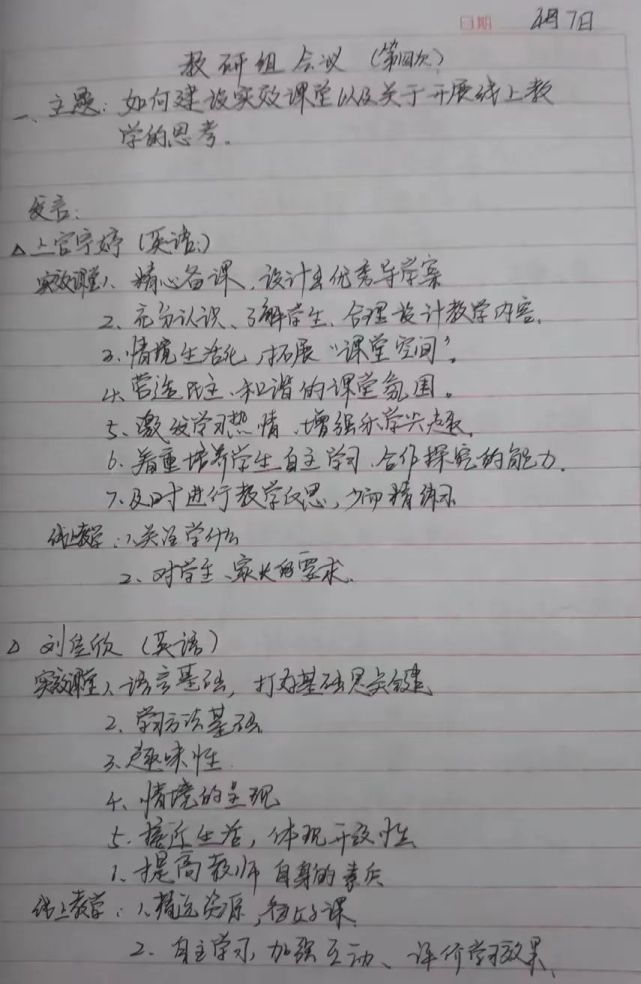 日期 4月7日
教研组会议(第四次)
一、主题:如何建设实效课堂以及关于开展线上教
学的思考。
发言:
△上官宇婷(英语)
实效课堂1、精心备课,设计出优秀导学案
2、充分认识、了解学生,合理设计教学内容.
3、情境生活化,拓展“课堂空间”。
4、营造民主、和谐的课堂氛围。
5、激发学习热情,增强乐学兴趣.
6、着重培养学生自主学习、合作探究的能力.
7、及时进行教学反思,少而精练习
线上教学:1、关注学什么
2、对学生、家长的要求.
△ 刘佳欣(英语)
实效课堂1、语言基础,打好基础是关键
2、学习方法基础
3、趣味性
4、情境的呈现
5、接近生活,体现开放性
1、提高教师自身的素质
线上教学:1、精选资源,备好课.
2、自主学习,加强互动、评价学习效果.